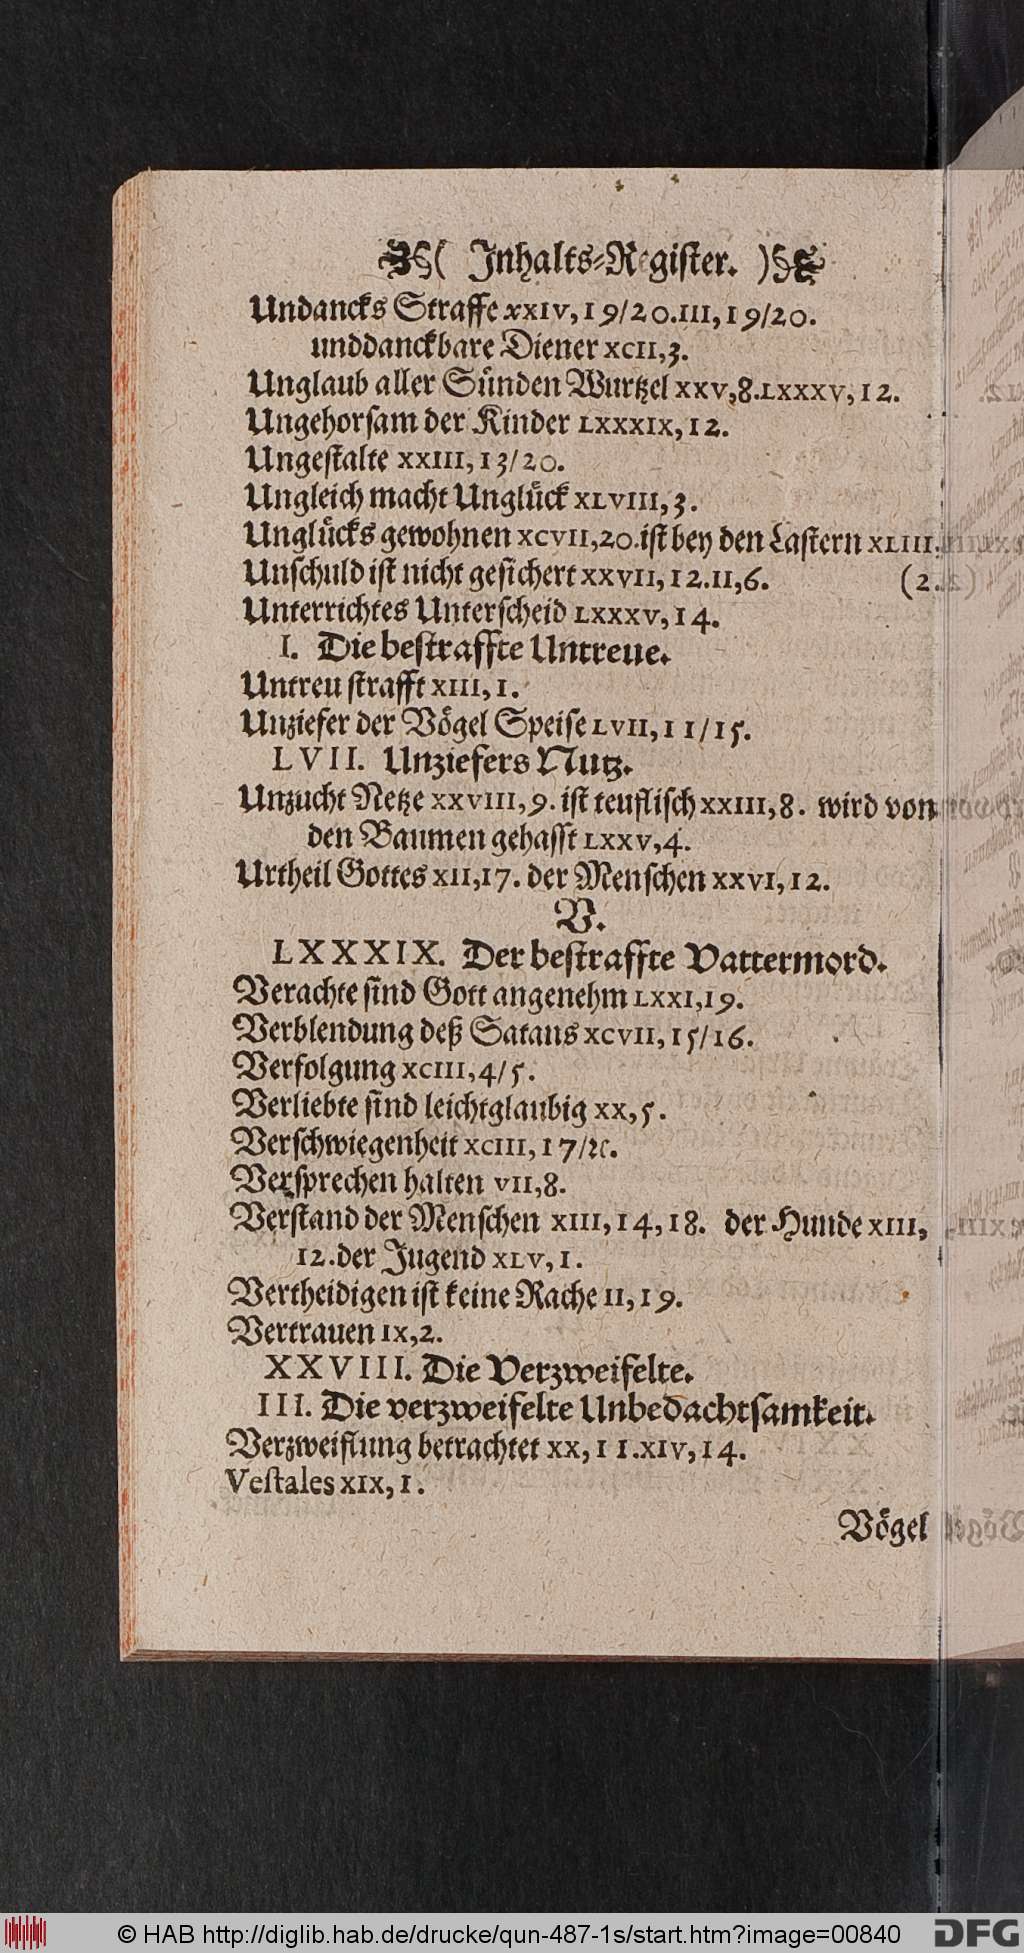 ( Inhalts-Register. )
Undancks Straffe XXIV, 19/20. III, 19/20.
unddanckbare Diener XCII, 3.
Unglaub aller Sünden Wurtzel XXV, 8. LXXXV, 12.
Ungehorsam der Kinder LXXXIX, 12.
Ungestalte XXIII, 13/20.
Ungleich macht Unglück XLVIII, 3.
Unglücks gewohnen XCVII, 20. ist bey den Lastern XLIII.
Unschuld ist nicht gesichert XXVII, 12. II, 6. (2.
Unterrichtes Unterscheid LXXXV, 14.
I. Die bestraffte Untreue.
Untreu strafft XIII, 1.
Unziefer der Vögel Speise LVII, 11/15.
LVII. Unziefers Nutz.
Unzucht Netze XXVIII, 9. ist teuflisch XXIII, 8. wird von
den Baumen gehasst LXXV, 4.
Urtheil Gottes XII, 17. der Menschen XXVI, 12.
V.
LXXXIX. Der bestraffte Vattermord.
Verachte sind Gott angenehm LXXI, 19.
Verblendung deß Satans XCVII, 15/16.
Verfolgung XCIII, 4/5.
Verliebte sind leichtglaubig XX, 5.
Verschwiegenheit XCIII, 17/ꝛc.
Versprechen halten VII, 8.
Verstand der Menschen XIII, 14, 18. der Hunde XIII,
12. der Jugend XLV, 1.
Vertheidigen ist keine Rache II, 19.
Vertrauen IX, 2.
XXVIII. Die Verzweifelte.
III. Die verzweifelte Unbedachtsamkeit.
Verzweiflung betrachtet XX, 11. XIV, 14.
Vestales XIX, 1.
Vögel
© HAB http://diglib.hab.de/drucke/qun-487-1s/start.htm?image=00840
DFG